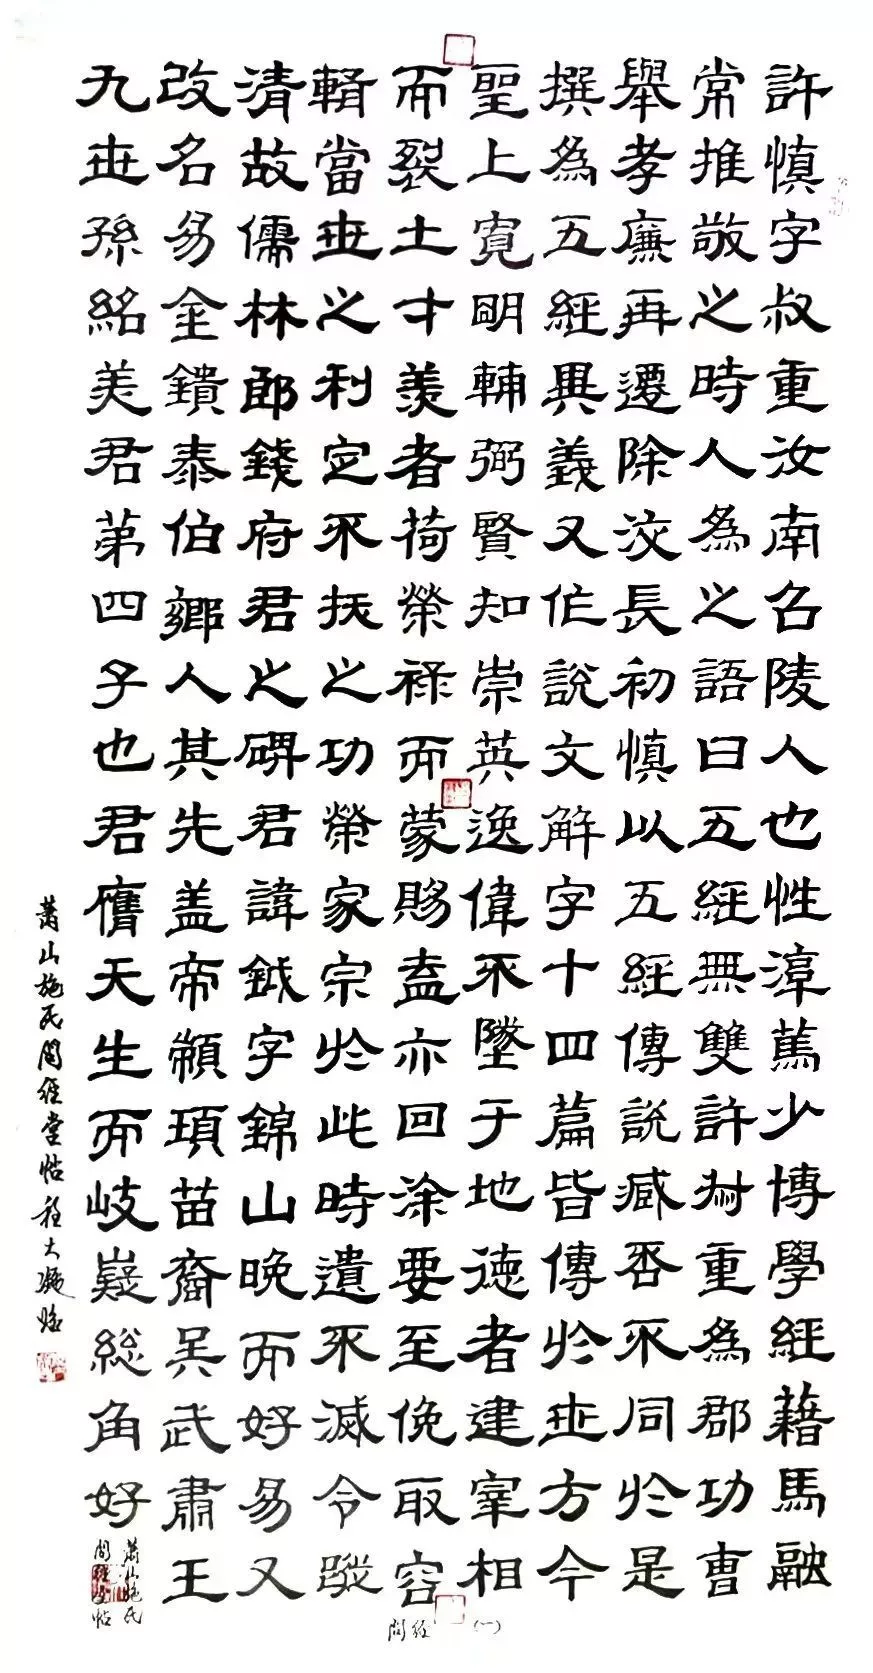 許慎字叔重汝南召陵人也性淳篤少博學經藉馬融
常推敬之時人為之語曰五經無雙許叔重為郡功曹
舉孝廉再遷除洨長初慎以五經傳說臧否不同於是
撰為五經異義又作說文解字十四篇皆傳於世方今
聖上寬明輔弼賢知崇英逸偉不墜于地德者建宰相
而裂土才羨者荷榮祿而蒙賜盍亦回涂要至俛取容
輯當世之利定不拔之功榮家宗於此時遺不滅令蹤
清故儒林郎錢府君之碑君諱鉞字錦山晚而好易又
改名易金鐀泰伯鄉人其先盖帝顓頊苗裔吳武肅王
九世孫紹美君第四子也君膺天生而岐嶷総角好
蕭山施氏
蕭山施氏